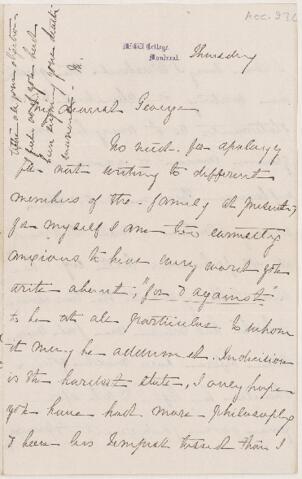 Acc. 976
McGill College,
Montreal.
Thursday
My dearest George
No need for apology
for not writing to different
members of the family at present,
for myself I am too earnestly
anxious to have every word you
write about, "for & against"
to be at all particular to whom
it may be addressed. Indecision
is the hardest state, I only hope
you have had more philosophy
& been less tempest tossed than I
After all your
if you had
been signing your death
warrant - M.